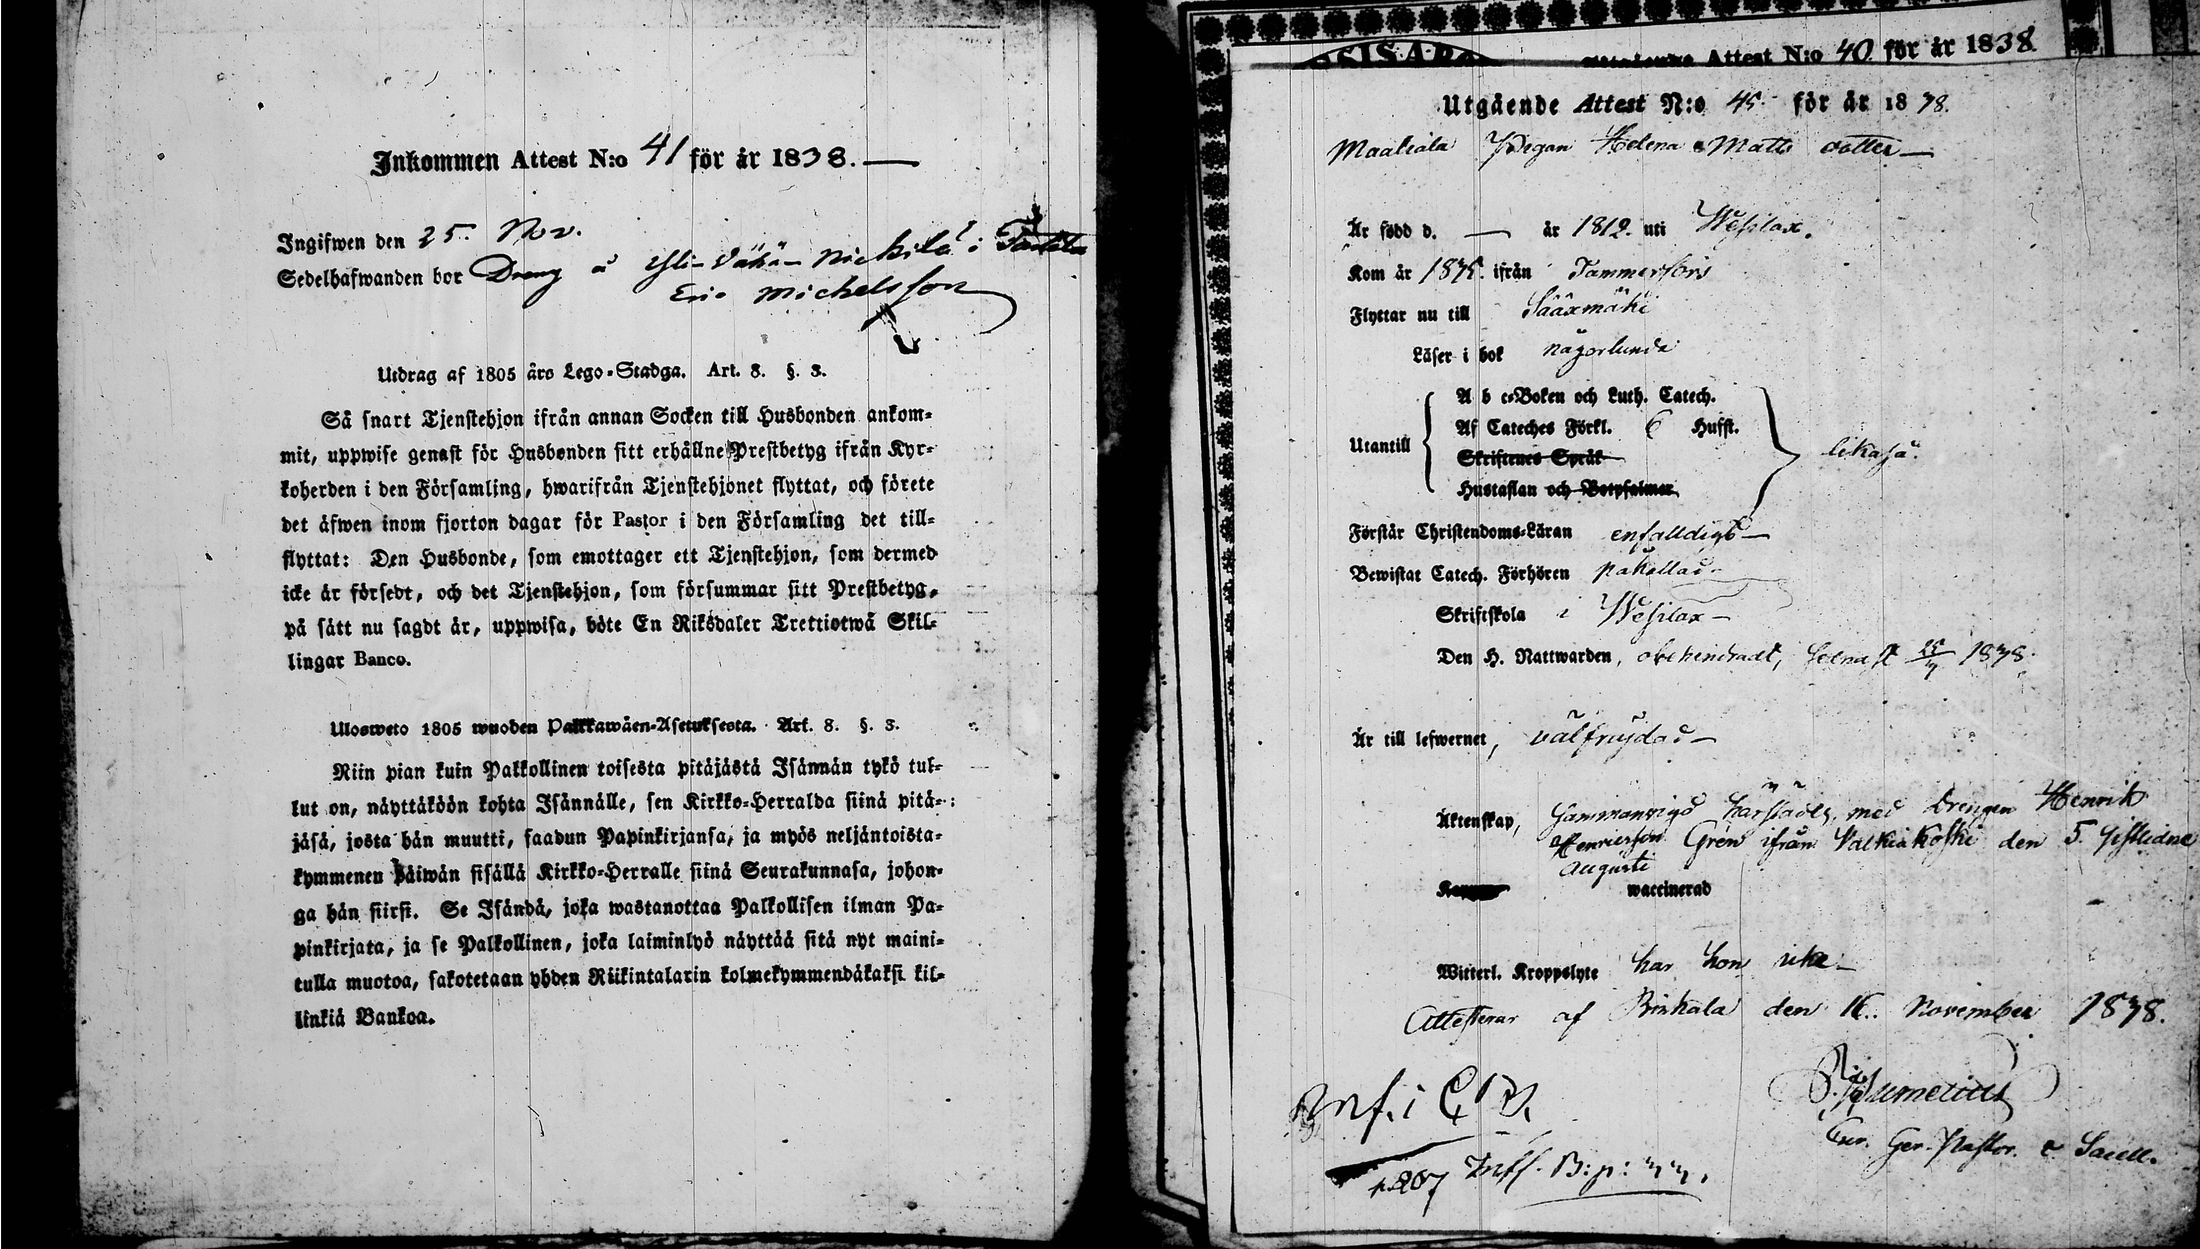 Inkommen Attest N:o 41 för år 1838.
Ingifwen den 25. Nov.
Sedelhafwanden bor Dreng å Yli-Vähä-Nickilä i
Eric Michelsson
Utdrag af 1805 års Lego-Stadga. Art. 8. §. 3.
Så snart Tjenstehjon ifrån annan Socken till Husbonden ankom-
mit, uppwise genast för Husbonden sitt erhållne Prestbetyg ifrån Kyr-
koherden i den Församling, hwarifrån Tjenstehjonet flyttat, och förete
det äfwen inom fjorton dagar för Pastor i den Församling det till-
flyttat: Den Husbonde, som emottager ett Tjenstehjon, som dermed
icke är försedt, och det Tjenstehjon, som försummar sitt Prestbetyg,
på sätt nu sagdt är, uppwisa, böte En Riksdaler Trettiotwå Skil-
lingar Banco.
Ulosweto 1805 wuoden Palkkawäen-Asetuksesta. Art. 8. §. 3.
Niin pian kuin Palkollinen toisesta pitäjästä Isännän tykö tul-
lut on, näyttäköön kohta Isännälle, sen Kirkko-Herralda siinä pitä-
jäsä, josta hän muutti, saadun Papinkirjansa, ja myös neljäntoista-
kymmenen päiwän sisällä Kirkko-Herralle siinä Seurakunnasa, johon-
ga hän siirsi. Se Isändä, joka wastanottaa Palkollisen ilman Pa-
pinkirjata, ja se Palkollinen, joka laiminlyö näyttää sitä nyt maini-
tulla muotoa, sakotetaan yhden Riikintalarin kolmekymmendäkaksi kil-
linkiä Bankoa.
Attest N:o 40 för år 1838
Utgående Attest N:o 45. för år 1838.
Maaliala Pigan Helena Matts dotter
Är född d. — år 1812. uti Wesilax.
Kom år 1835. ifrån Tammerfors
Flyttar nu till Sääxmäki
Läser i bok någorlunda
Utantill
A b c-Boken och Luth. Catech.
Af Cateches Förkl. 6 Hufst.
Skriftenes Språk
Hustaflan och Botpsalmer
likaså.
Förstår Christendoms-Läran enfalldigt
Bewistat Catech. Förhören
Skriftskola i Wesilax
Den H. Nattwarden, obehindradt, senast 25/7 1838.
Är till lefwernet, välfrejdad
Äktenskap, sammanvigd härstädes, med Drengen Henrik
Henricsson Grén ifrån Valkiakoski den 5. sistledne
Augusti
waccinerad
Witterl. Kroppslyte har hon icke
Attesterar af Birkala den 16. November 1838.
Inf. i C. B.
p. 267 Inff. B: p: 33.
Ger. Pastor. &amp; Sacell.